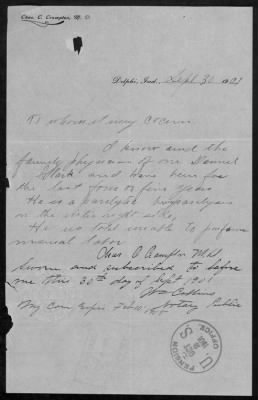 Chas. C. Crampton, M. D.
Delphi, Ind., Sept 30 1901
To whom it may concern
I know and the
family physician of one
Clark and have been for
the last four or five years
He is a paralytic
on the entire right side,
He is total unable to perform
manual labor
Chas C Crampton M.D.
Sworn and subscribed to before
me this 30th day of Sept 1901
Collins
My Com Expires Feb Notary Public
U.S. PENSION OFFICE